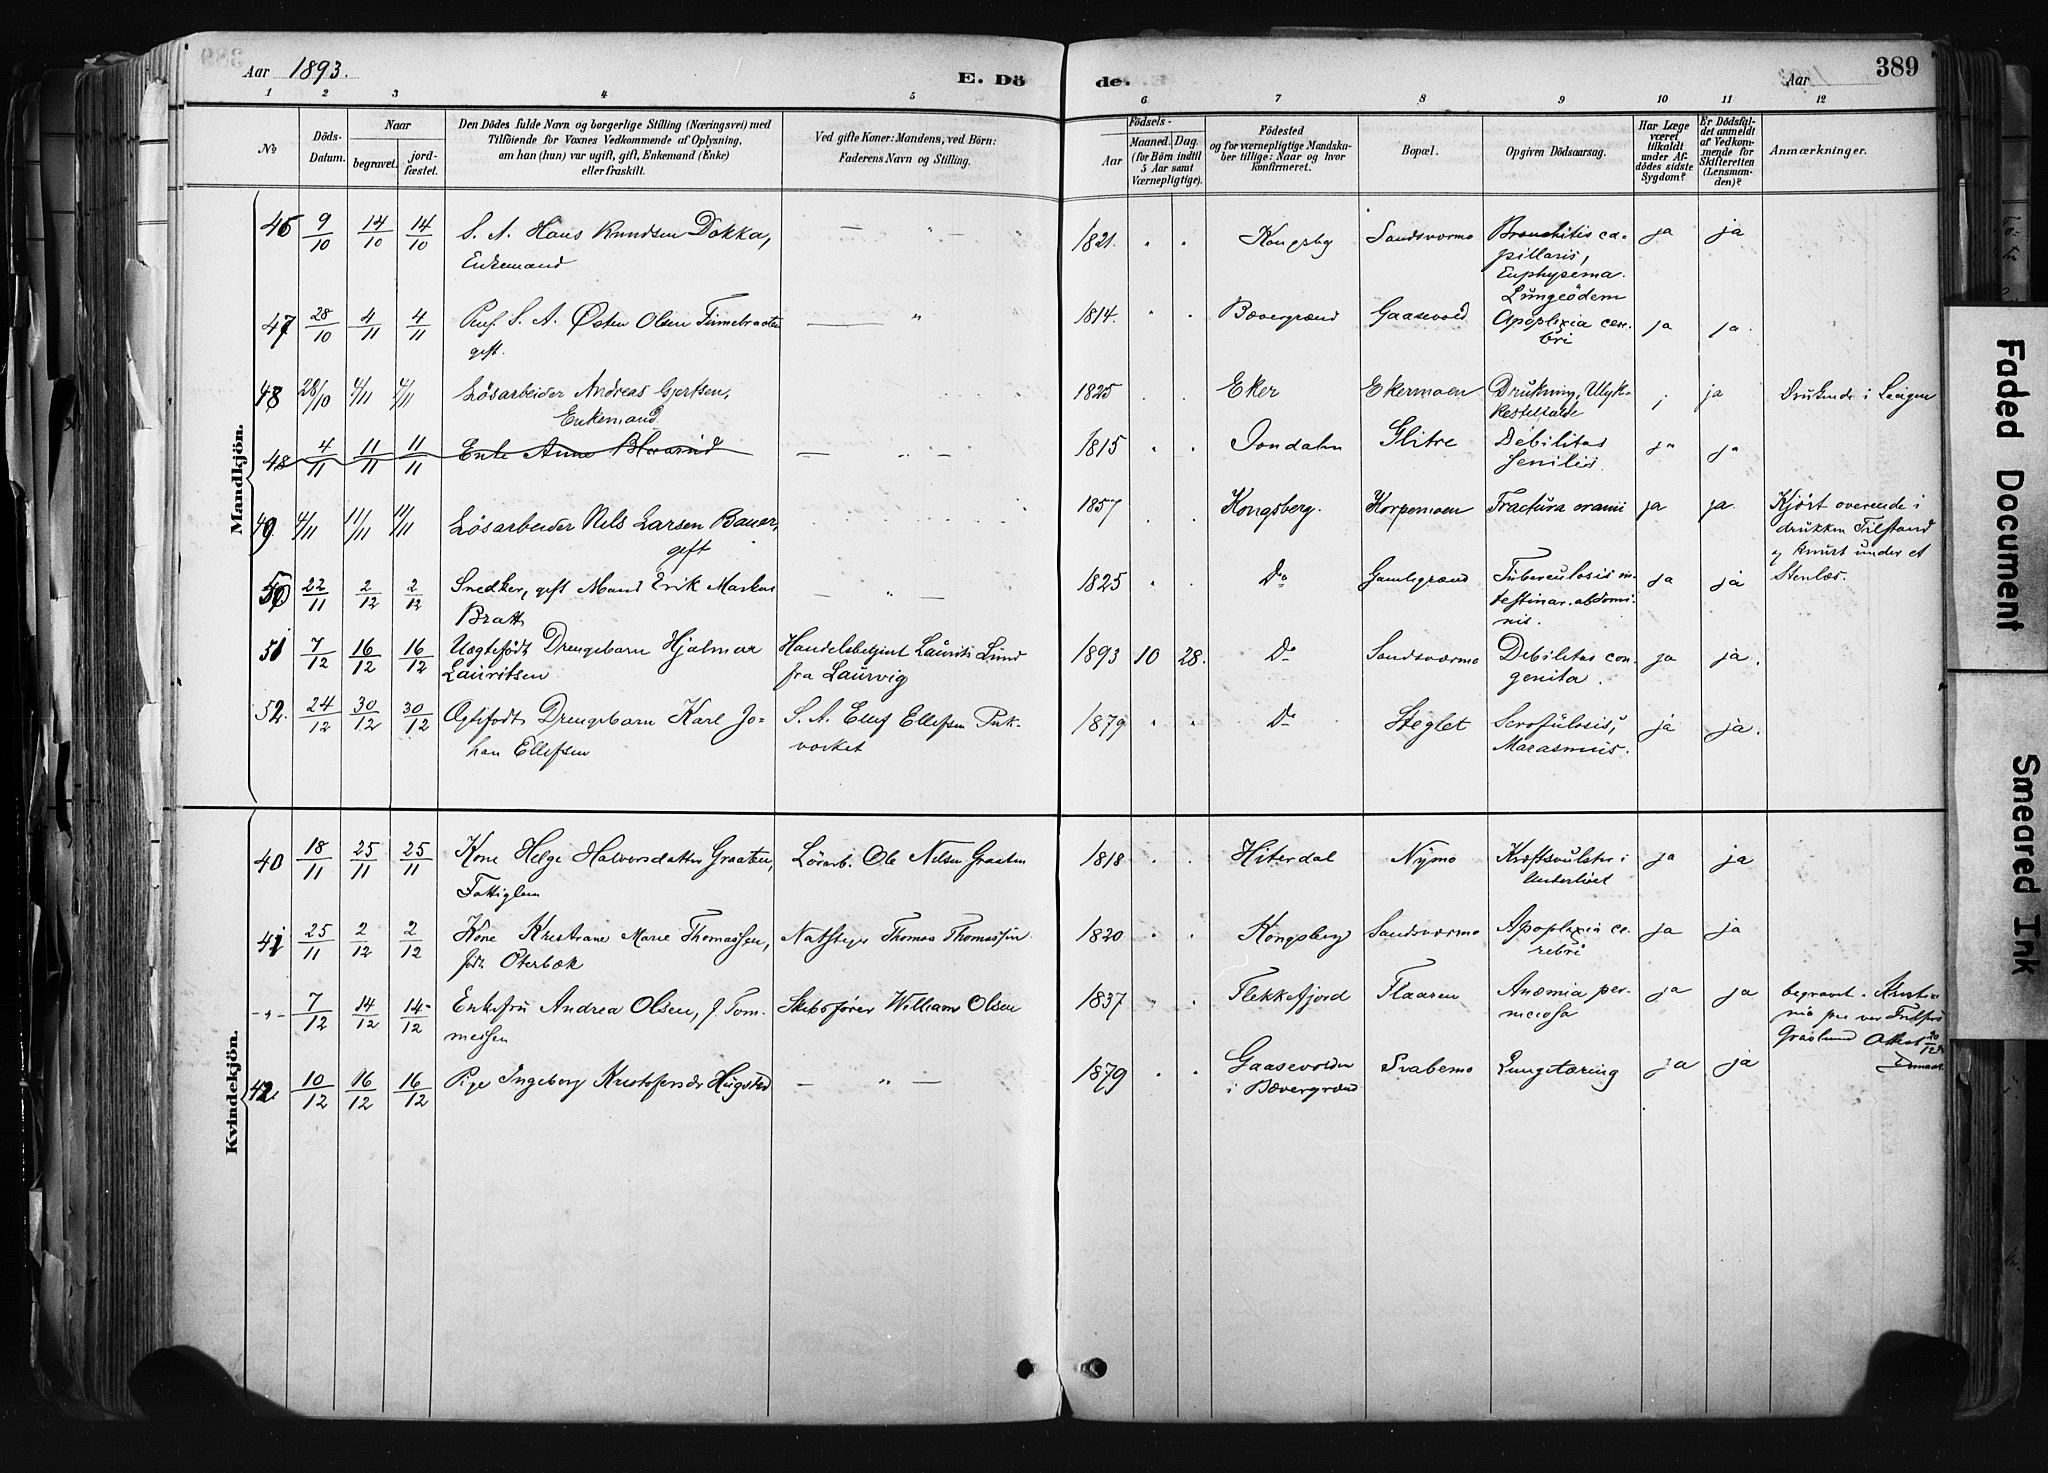 Aar 1893.
E. Dö
de.
Aar
389
1 2 3 4 5 6 7 8 9 10 11 12
No
Döds-
Datum.
Naar
begravet.
jord-
fæstet.
Den Dödes fulde Navn og borgerlige Stilling (Næringsvei) med
Tilföiende for Voxnes Vedkommende af Oplysning,
om han (hun) var ugift, gift, Enkemand (Enke)
eller fraskilt.
Ved gifte Koner: Mandens, ved Börn:
Faderens Navn og Stilling.
Födsels-
Aar
Maaned. Dag.
(for Börn indtil
5 Aar samt
Værnepligtige).
Födested
og for værnepligtige Mandska-
ber tillige: Naar og hvor
konfirmeret.
Bopæl.
Opgiven Dödsaarsag.
Har Læge
været
tilkaldt
under Af-
dödes sidste
Sygdom?
Er Dödsfal-
det anmeldt
af Vedkom-
mende for
Skifteretten
(Lensman-
den)?
Anmærkninger.
Mandkjön.
46 9/10 14/10 14/10 S. A. Hans Knudsen Dokka, — " — 1821. " " Kongsbg Sandsværmo Bronchitis ca- ja ja
Enkemand pillaris,
Emphysema.
Lungeödem
47 28/10 4/11 4/11 S. A. Østen Olsen — " 1814. " " Bævergrænd Gaasevold Apoplexia cere- ja ja.
gift. bri
48 28/10 4/11 4/11 Løsarbeider Andreas Gjertsen, 1825 " " Eker Ekermoen Drukning, Ulyk- j ja Druknede i Laagen
Enkemand kestilfælde
48 4/11 11/11 11/11 Enke Anne — " — 1815 " " Jondalen Glitre Debilitas ja ja
senilis.
49. 4/11 11/11 11/11 Løsarbeider Nils Larsen Bauer, 1857 " " Kongsberg. Korpemoen Fractura cranii ja ja. Kjørt overende i
gift drukken Tilstand
og knust under et
Stenlæs.
50 22/11 2/12 2/12 Snedker, gift Mand Erik Markus — " — 1825 " " Do Gamlegrænd Tuberculosis in- ja ja
Bratt testinar. abdomi-
nis.
51 7/12 16/12 16/12 Uægtefødt Drengebarn Hjalmar Handelsbetjent Laurits Lund 1893 10 28. Do Sandsværmo Debilitas con- ja ja.
Lauritsen fra Laurvig genita.
52. 24/12 30/12 30/12 Ægtefødt Drengebarn Karl Jo- S. A. Ellef Ellefsen Puk- 1879 " " Do Steglet Scrofulosis, ja ja.
han Ellefsen værket Marasmus.
Kvindekjön.
40 18/11 25/11 25/11 Kone Helge Halvorsdatter Graaten, Løsarb. Ole Nilsen Graaten 1818 " " Hiterdal Nymo Kræftsvulster i ja ja
Fattiglem Underlivet
41 25/11 2/12 2/12 Kone Kristiane Marie Thomassen, Thomas Thomassen 1820 " " Kongsberg Sandsværmo Apoplexia ce- ja ja
født Oterbæk rebri
-"- 7/12 14/12 14/12 Enkefru Andrea Olsen, f. Tom- Skibsfører William Olsen 1837 " " Flekkefjord Flaaren Anæmia per- ja ja begravet i Kristia-
messen niciosa nia
42 10/12 16/12 16/12 Pige Ingeborg Kristofersdr Hugsted — " — 1879 " " Gaasevolden Svabemo Lungetæring ja ja
i Bævergrænd
Faded Document
Smeared Ink